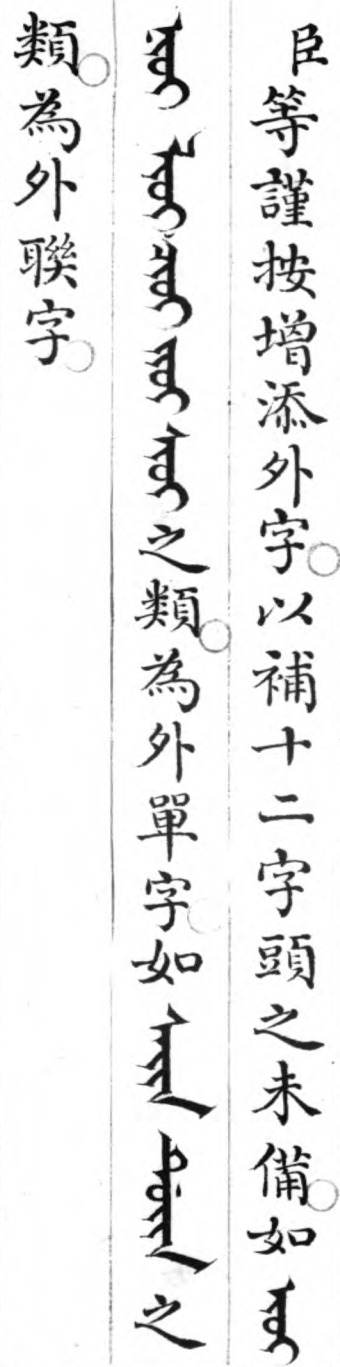 臣等謹按增添外字以補十二字頭之未備如
之類為外單字如之
類為外聯字